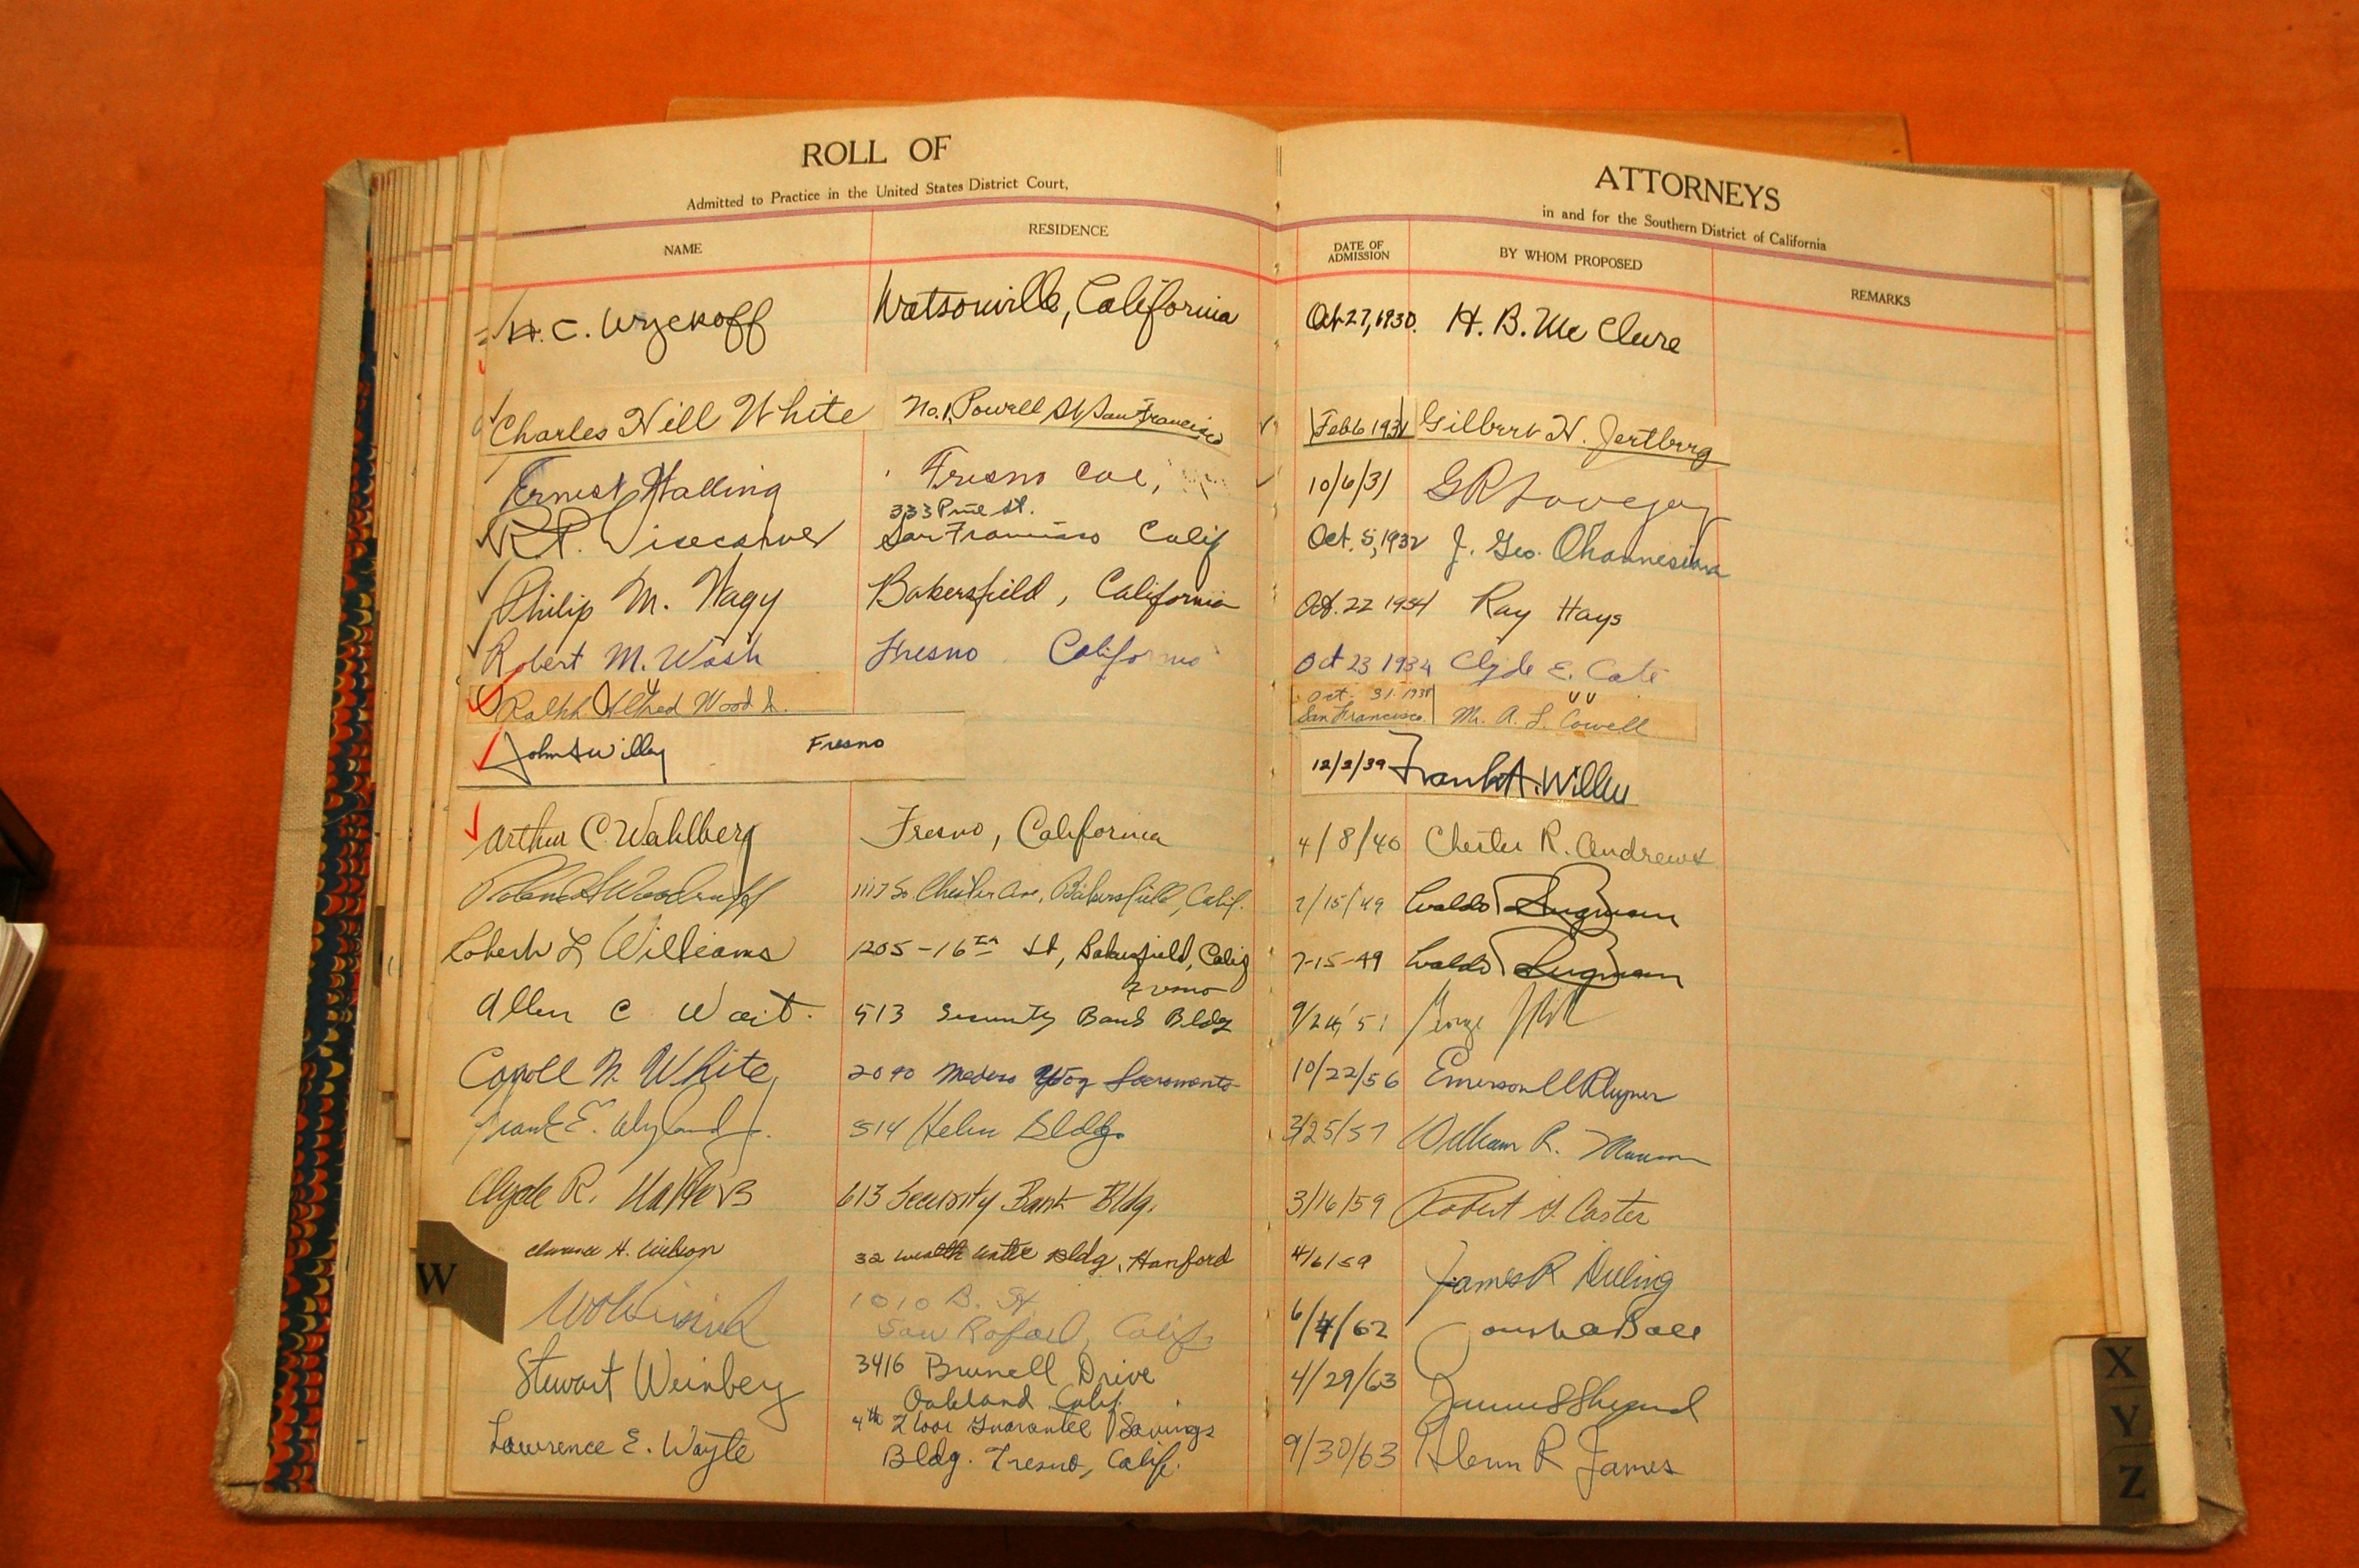 ROLL OF ATTORNEYS
Admitted to Practice in the United States District Court, in and for the Southern District of California
NAME RESIDENCE DATE OF ADMISSION BY WHOM PROPOSED REMARKS
H. C. Wyckoff Watsonville, California Oct 27, 1930. H. B. McClure
Charles Hill White No. 1, Powell St San Francisco Feb 6 1931 Gilbert H. Jertberg
Ernest Walling Fresno Cal, 10/6/31 GR Lovejoy
333 Pine St.
R.P. Wisecarver San Francisco Calif Oct. 5, 1932 J. Geo. Ohannesian
Philip M. Wagy Bakersfield, California Oct. 22 1934 Ray Hays
Robert M. Wash Fresno California Oct 23 1934 Clyde E. Cate
Ralph Alfred Wood Jr. Oct. 31. 1938 San Francisco. Mr. A. L. Cowell
John S Willey Fresno 12/2/39 Frank A. Willey
Arthur C. Wahlberg Fresno, California 4/8/40 Chester R. Andrews
Woodruff 1117 So. Chester Ave, Bakersfield, Calif. 7/15/49 Waldo
Robert L Williams 1205-16th St, Bakersfield, Calif 7-15-49 Waldo
Fresno
Allen C. Wait. 513 Security Bank Bldg 9/24/51 George
Coyell N. White 2090 Way Sacramento 10/22/56 Emerson
Frank E. Wyland Jr. 514 Helm Bldg. 3/25/57 William R.
Clyde R. Walters 613 Security Bank Bldg. 3/16/59 Robert G. Carter
Clarence H. Wilson 32 Bldg, Hanford 4/6/59
James R
1010 B. St.
San Rafael, Calif. 6/4/62 Ball
Stewart Weinberg 3416 Brunell Drive 4/29/63
Oakland Calif.
4th Floor Guarantee Savings
Lawrence E. Wayte Bldg. Fresno, Calif. 9/30/63 Glenn R James
W
X
Y
Z